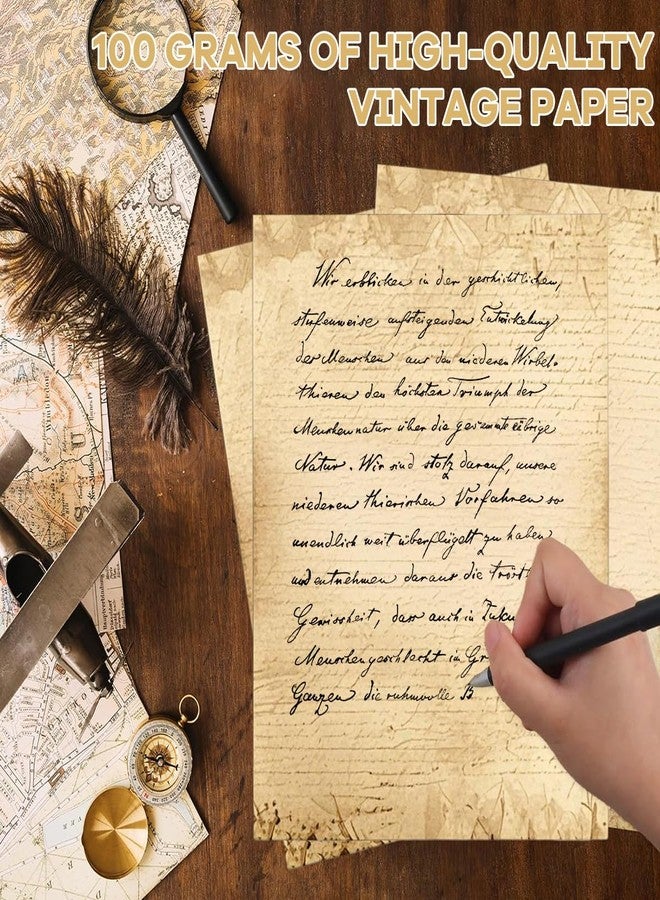 100 GRAMS OF HIGH-QUALITY
VINTAGE PAPER
Wir erblicken in der geschichtlichen,
stufenweise aufsteigenden Entwickelung
der Menschen aus den niederen Wirbel-
thieren den höchsten Triumph der
Menschennatur über die gesammte übrige
Natur. Wir sind stolz darauf, unsere
niederen thierischen Vorfahren so
unendlich weit überflügelt zu haben
und entnehmen daraus die tröst
Gewissheit, dass auch in Zuku
Menschengeschlecht im Gr
Ganzen die ruhmvolle B